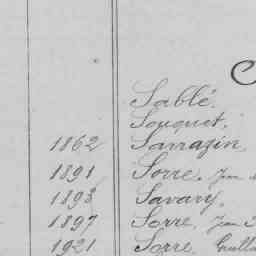 Sablé.
Souquet.
1862 Sarrazin.
1891 Sorre. Jean
1893 Savary.
1897 Sorre. Jean
1921 Sorre. Guill